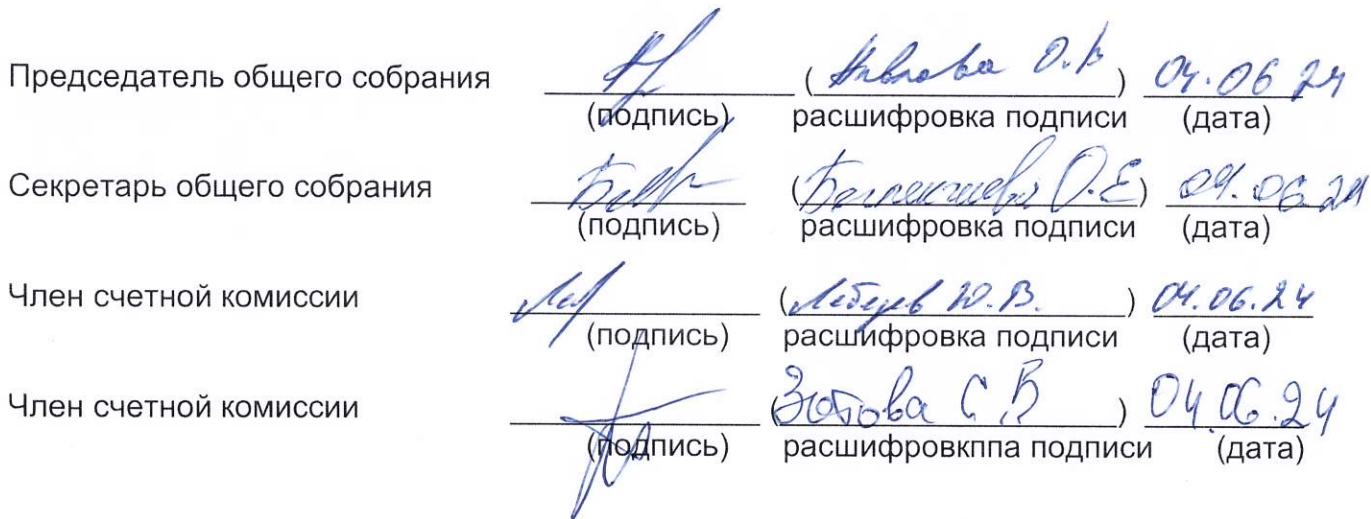 Председатель общего собрания ( О.В ) 04.06 24
(подпись) расшифровка подписи (дата)
Секретарь общего собрания ( О.Е) 04.06.24
(подпись) расшифровка подписи (дата)
Член счетной комиссии ( Ю.В. ) 04.06.24
(подпись) расшифровка подписи (дата)
Член счетной комиссии (Зотова С В ) 04.06.24
(подпись) расшифровкппа подписи (дата)